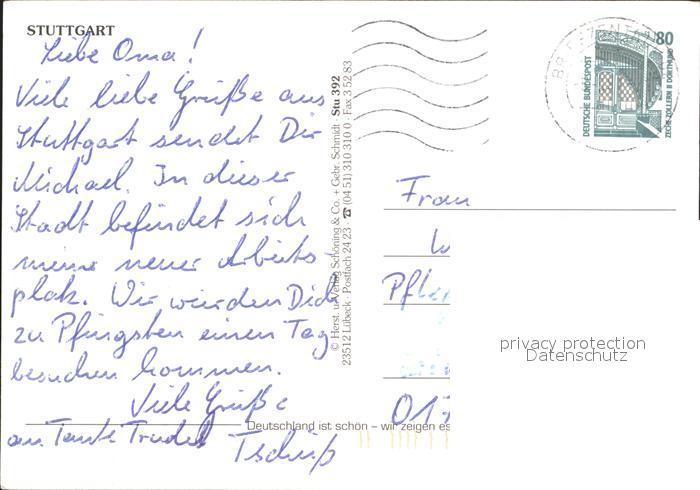 STUTTGART
Liebe Oma!
Viele liebe Grüße aus
Stuttgart sendet Dir
Michael. In dieser
Stadt befindet sich
meine neuer Arbeits-
platz. Wir würden Dich
zu Pfingsten einen Tag
besuchen kommen.
Viele Grüße
an Tante Trudel Tschüß
© Herst. u. Verlag Schöning & Co. + Gebr. Schmidt · Stu 392
23512 Lübeck · Postfach 24 23 · ☎ (04 51) 310 310 0 · Fax 3 52 83
Deutschland ist schön – wir zeigen es
80
DEUTSCHE BUNDESPOST
ZECHE ZOLLERN II DORTMUND
Frau
W
Pfle
017
privacy protection
Datenschutz